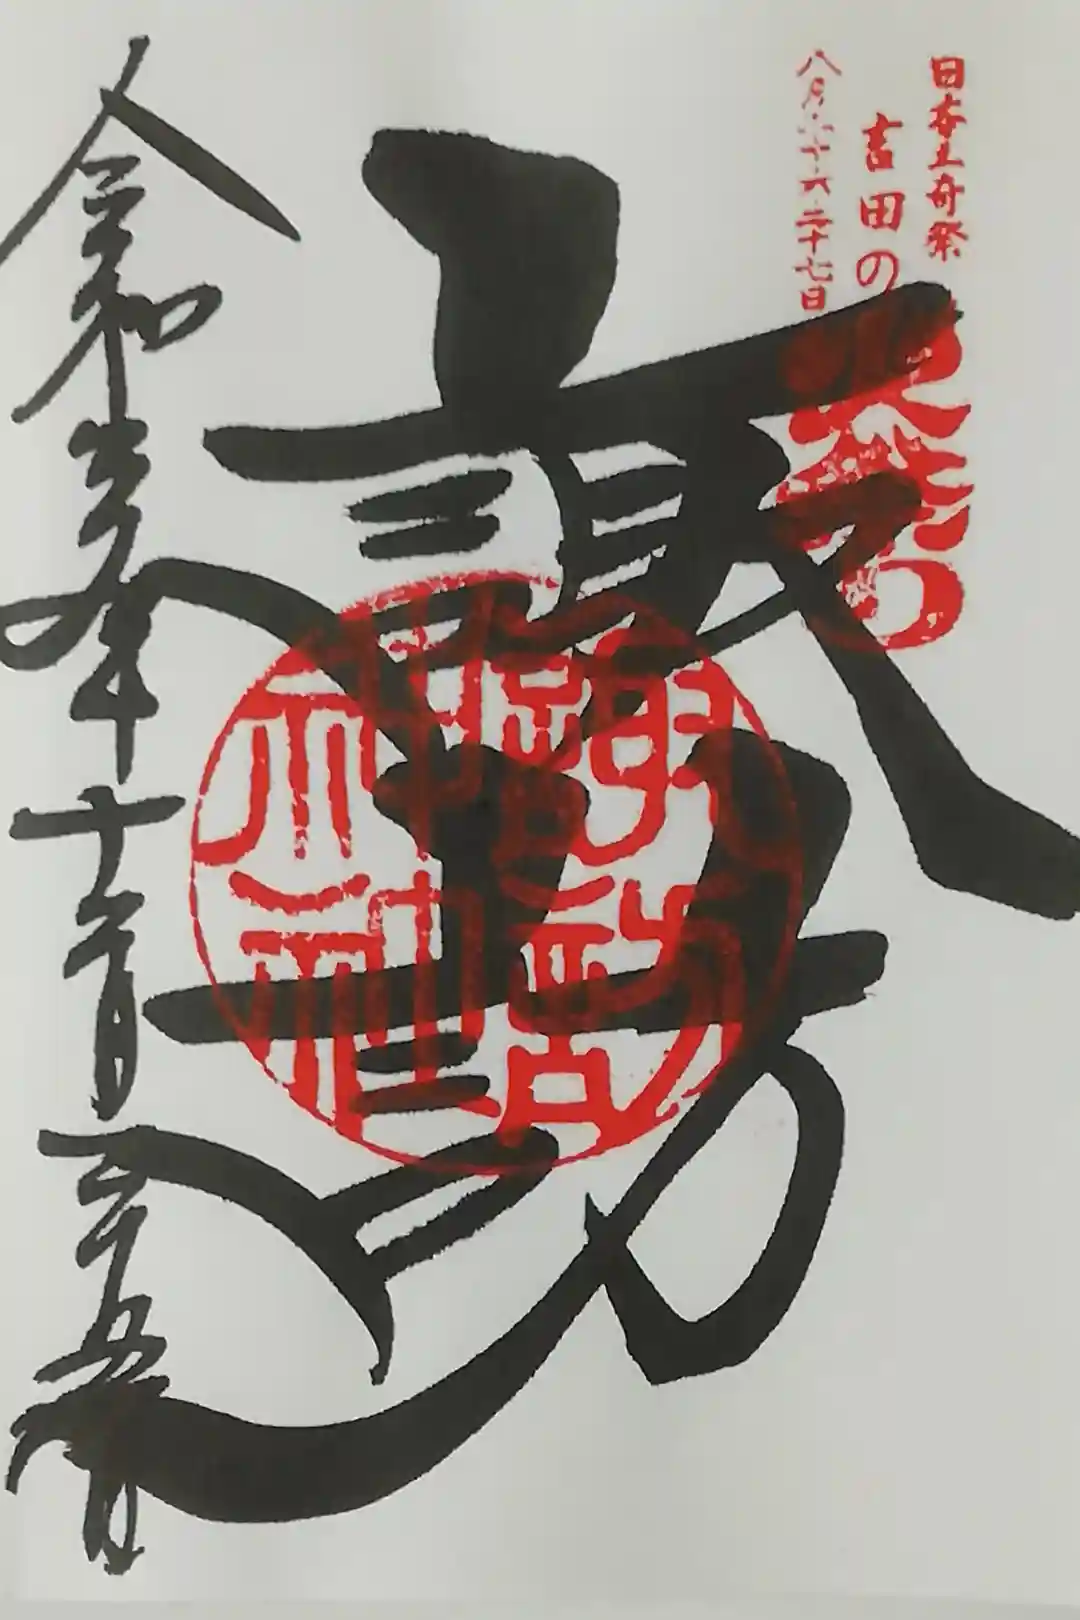 日本三奇祭
吉田の火祭り
八月二十六・二十七日
諏訪
諏訪神社
令和五年十一月二十五日